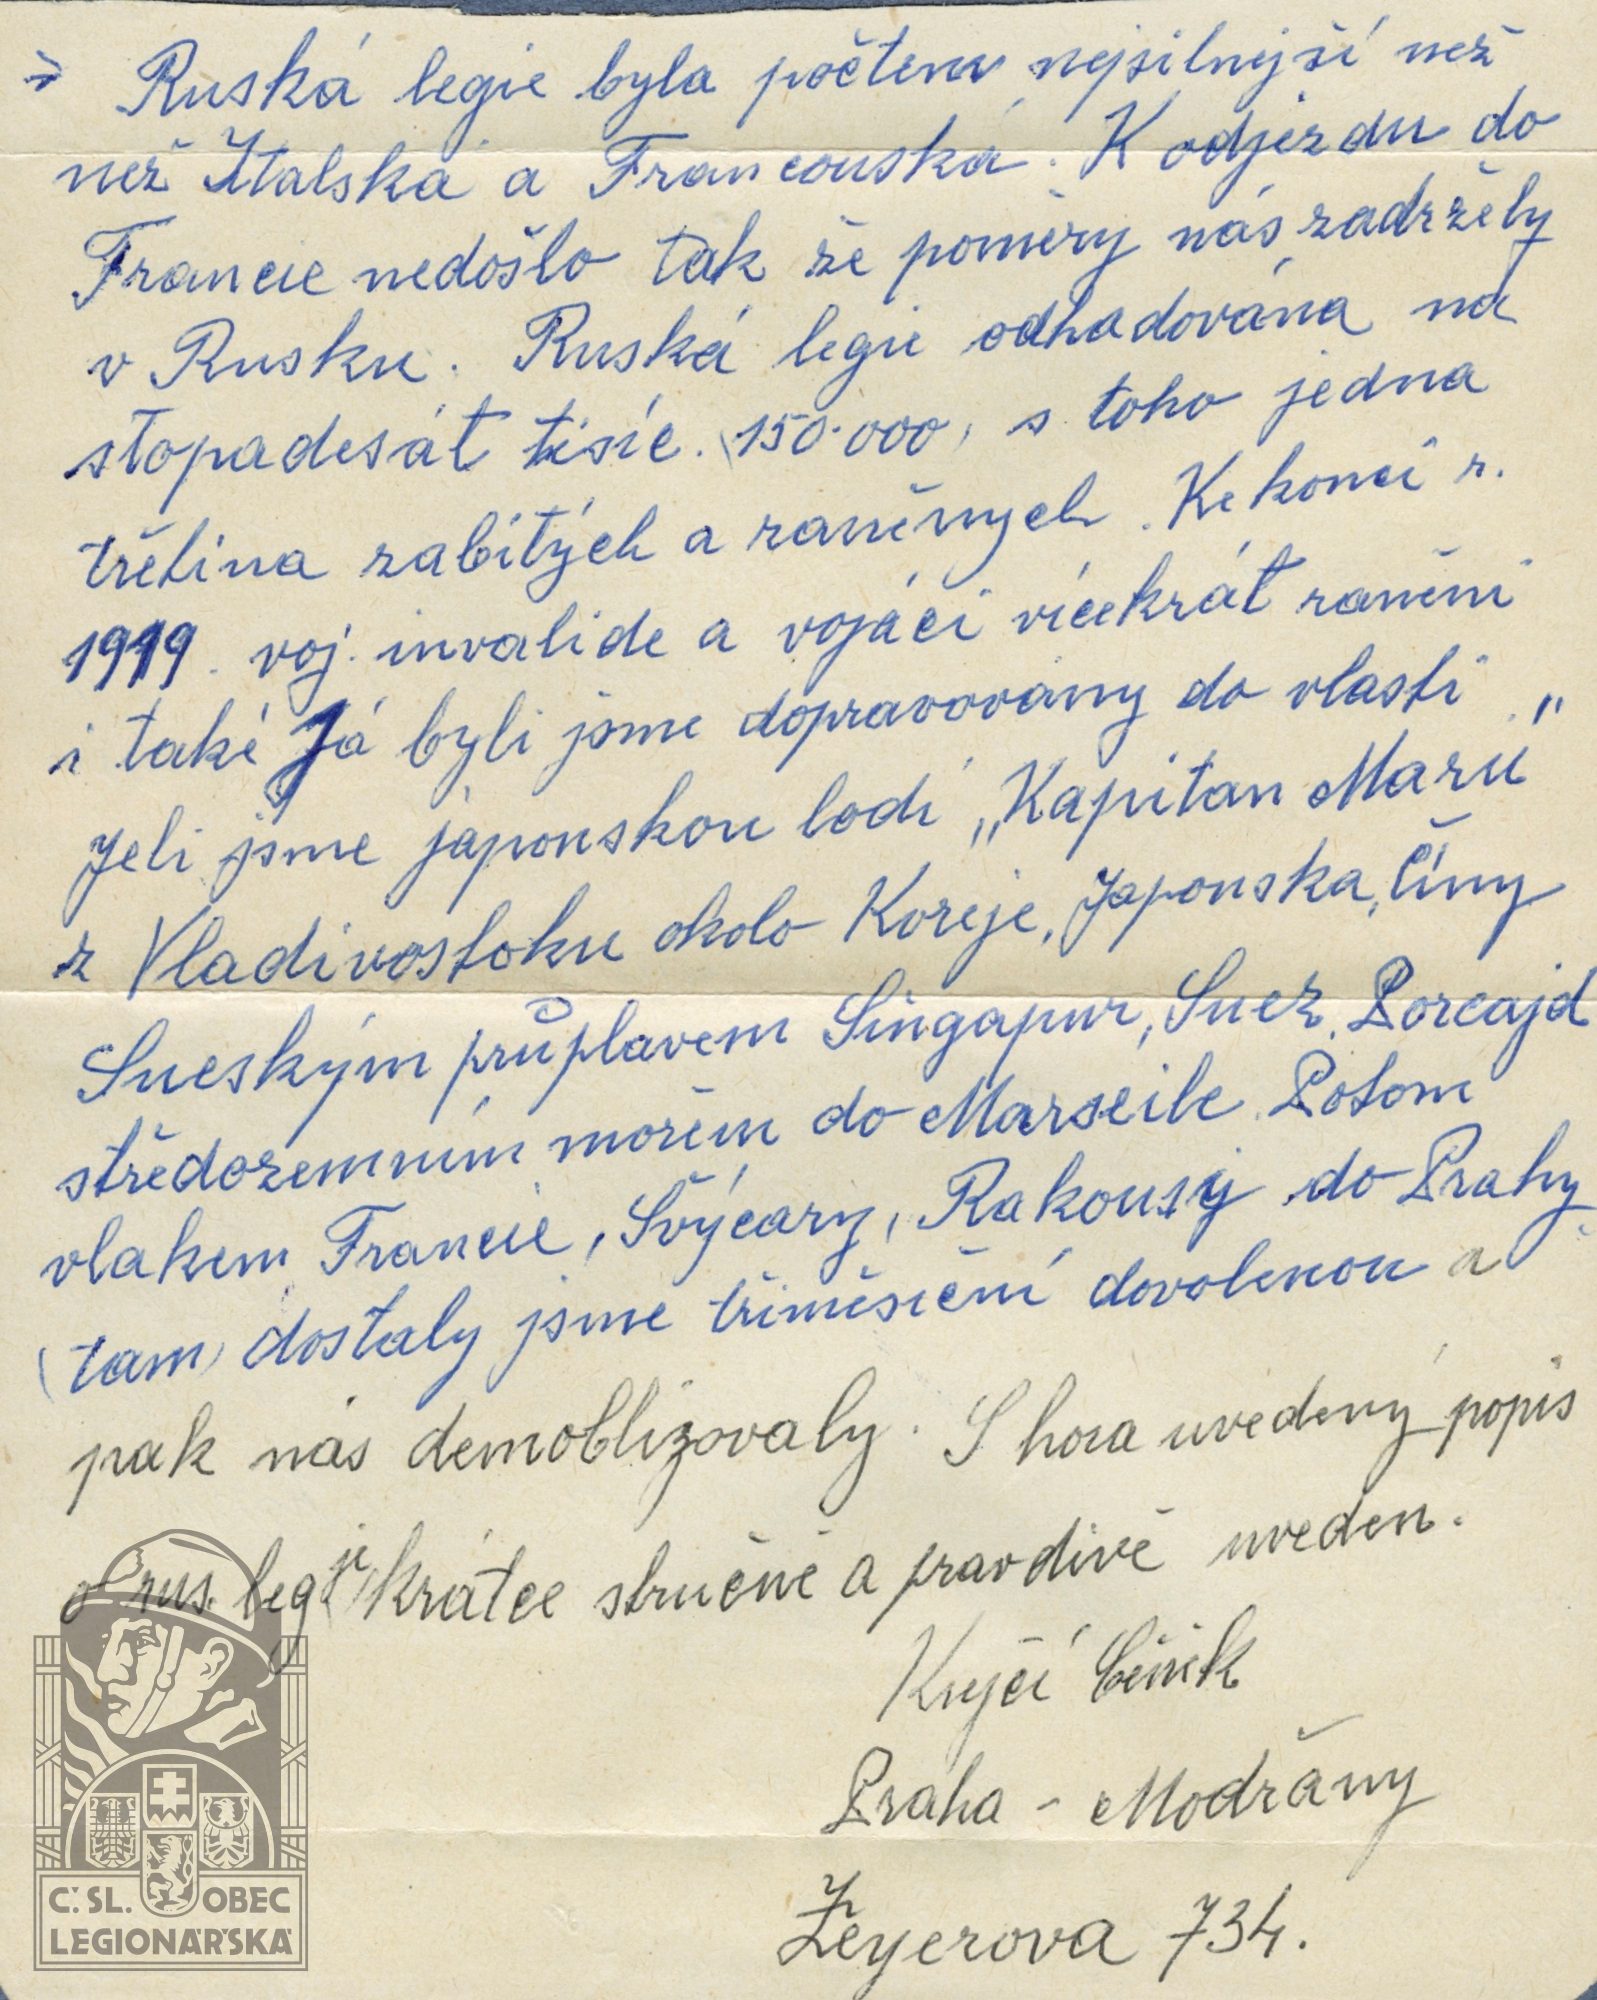 Ruská legie byla počtem nejsilnejší než
než Italská a Francouská. K odjezdu do
Francie nedošlo tak že poměry nás zadržely
v Rusku. Ruská legie odhadována na
stopadesát tisíc. (150.000, s toho jedna
třetina zabitých a raněných. Ke konci r.
1919. voj. invalide a vojáci vícekrát raněni
i také Já byli jsme dopravovány do vlasti.
Jeli jsme japonskou lodí „Kapitan Marú"
z Vladivostoku okolo Koreje, Japonska, Číny
Sueským průplavem Singapur, Suez, Porcajd
středozemním mořem do Marseile. Potom
vlakem Francie, Švýcary, Rakousy do Prahy.
(tam) dostaly jsme tříměsíční dovolenou a
pak nás demoblizovaly. S hora uvedený popis
o rus. legii je krátce stručně a pravdivě uveden.
Krejčí Čeněk
Praha - Modřany
Zeyerova 734.
Č.SL. OBEC
LEGIONÁŘSKÁ